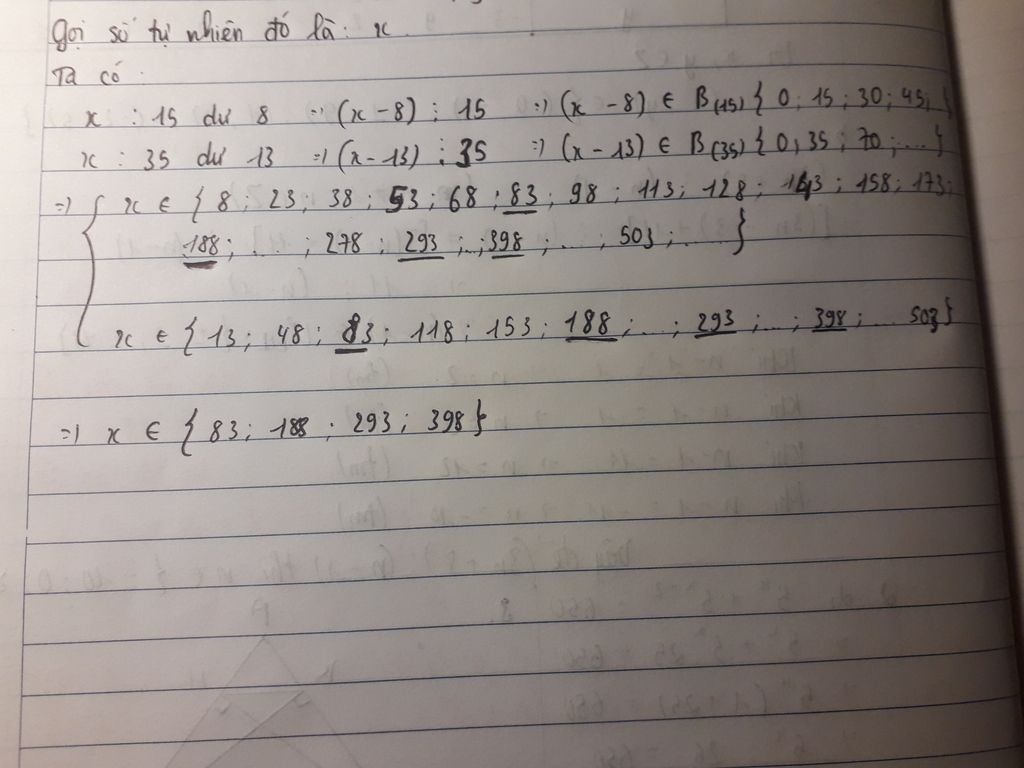 Gọi số tự nhiên đó là: x
Ta có:
x : 15 dư 8 => (x - 8) ⋮ 15 => (x - 8) ∈ B(15) { 0; 15; 30; 45; }
x : 35 dư 13 => (x - 13) ⋮ 35 => (x - 13) ∈ B(35) { 0; 35; 70; ... }
=> { x ∈ { 8; 23; 38; 53; 68; 83; 98; 113; 128; 143; 158; 173;
188; ... ; 278; 293; ...; 398; ... ; 503; ... }
x ∈ { 13; 48; 83; 118; 153; 188; ...; 293; ...; 398; ... 503 }
=> x ∈ { 83; 188; 293; 398 }